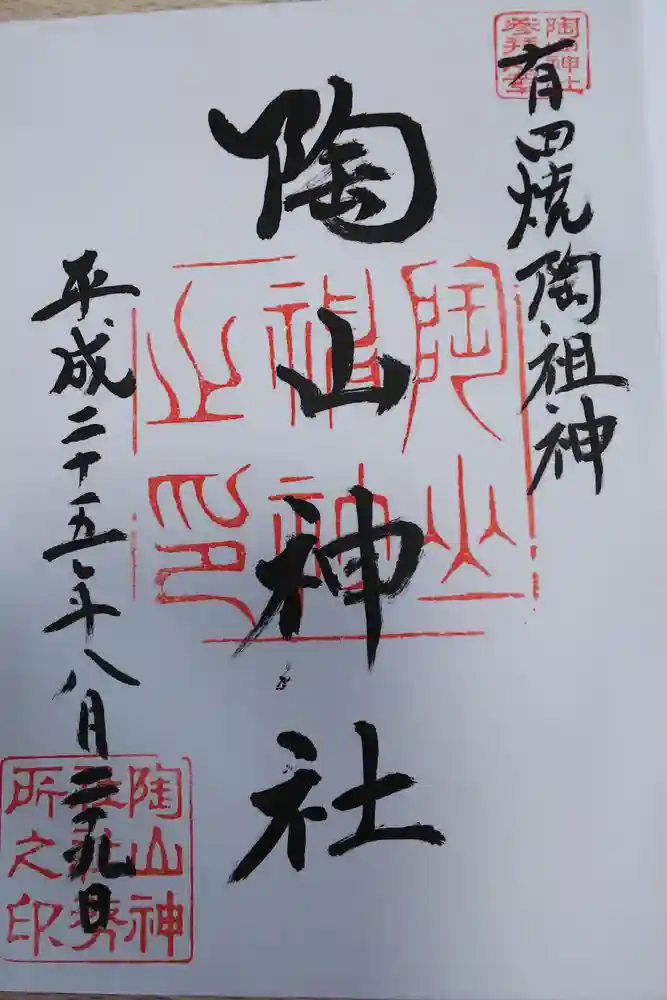 陶山神社
有田焼陶祖神
陶山神社
平成二十五年八月二十九日
陶山神
社社務
所之印